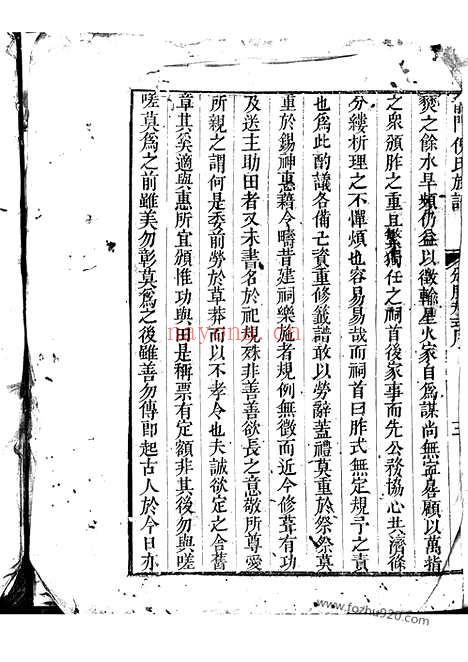 門倪氏族譜
頒胙定式序
三
燹之餘水旱頻仍益以徵輸星火家自為謀尚無寧晷顧以萬指
之衆頒胙之重且繁獨任之祠首後家事而先公務協心共濟條
分縷析理之不憚煩也容易易哉而祠首曰胙式無定規予之責
也為此酌議各備亡資重修籤譜敢以勞辭蓋禮莫重於祭祭莫
重於錫神惠藉令疇昔建祠樂施者規例無徵而近今修葺有功
及送主助田者又未書名於祀規殊非善善欲長之意敬所尊愛
所親之謂何是委前勞於草莽而以不孝令也夫誠欲定之合舊
章其奚適與惠所宜頒惟功與田是稱票有定額非其後勿與嗟
嗟莫為之前雖美勿彰莫為之後雖善勿傳即起古人於今日亦
nayona.cn
www.fozhu920.com